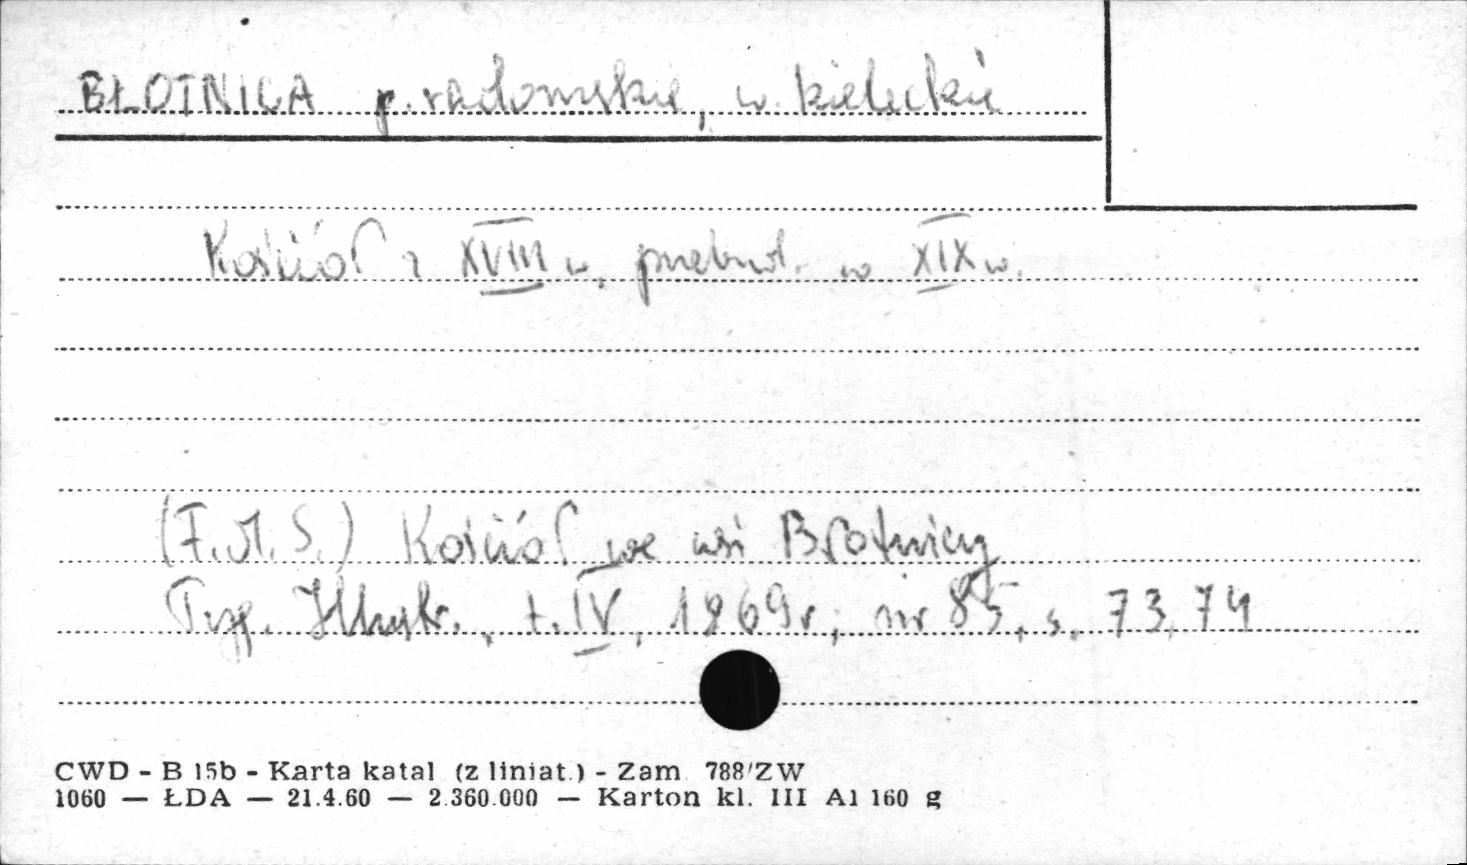 BŁOTNICA p. radomskie, w. kieleckie
Kościół z XVIII w., przebud. w XIX w.
(F.M.S.) Kościół we wsi Błotnicy
Tyg. Illustr., t. IV, 1869r; nr 85, s. 73,74
CWD - B 15b - Karta katal (z liniat.) - Zam 788/ZW
1060 — ŁDA — 21.4.60 — 2.360.000 — Karton kl. III A1 160 g